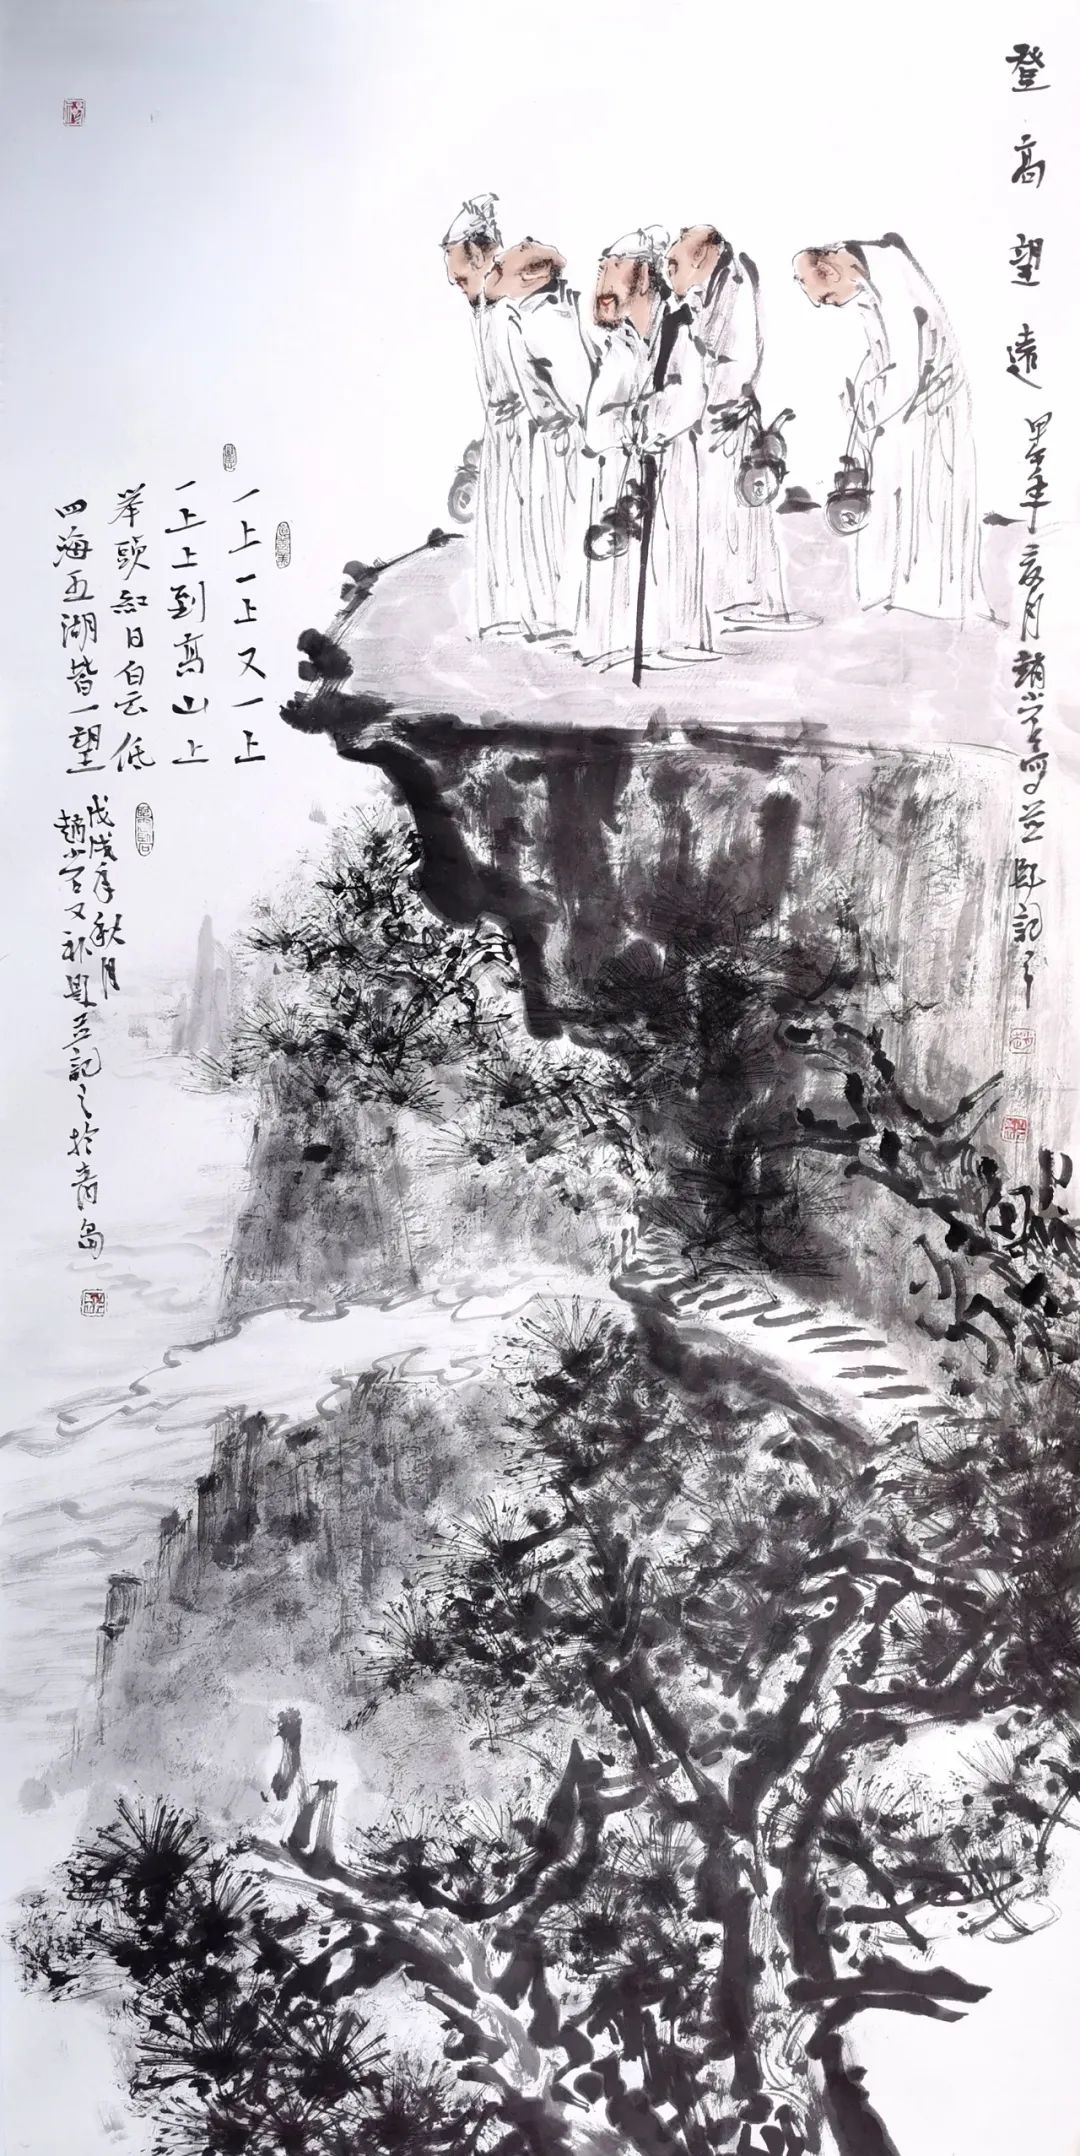 登高望远
甲午年六月赵学写并题记之
一上一上又一上
一上上到高山上
举头红日白云低
四海五湖皆一望
戊戌年秋月
赵学又补题并记之于青岛